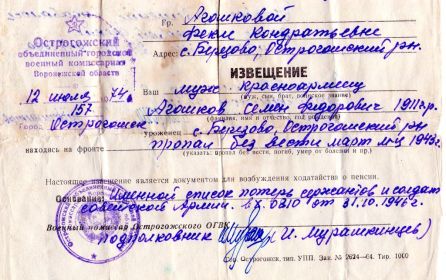 Гр. Агошковой
Фекле Кондратьевне
Острогожский
объединенный городской
военный комиссариат
Воронежской области
Адрес: с. Берцово, Острогожский рн.
ИЗВЕЩЕНИЕ
12 июля 74 г.
Ваш муж красноармеец
(муж, сын, брат, воинское звание)
157
Агошков Семен Федорович 1911 г.р.
(фамилия, имя и отчество, год рождения)
Город Острогожск
уроженец с. Берцово, Острогожский рн
находясь на фронте пропал без вести март м-ц 1943 г.
(указать: пропал без вести, погиб, умер от болезни и пр.)
Настоящее извещение является документом для возбуждения ходатайства о пенсии.
Основание: Именной список потерь сержантов и солдат
советской Армии. вх. 0310 от 31.10.1946 г.
Военный комиссар Острогожского ОГВК
подполковник (И. Мурашкинцев)
Острогожск. тип. УПП. Зак. № 2624—64. Тир. 1000